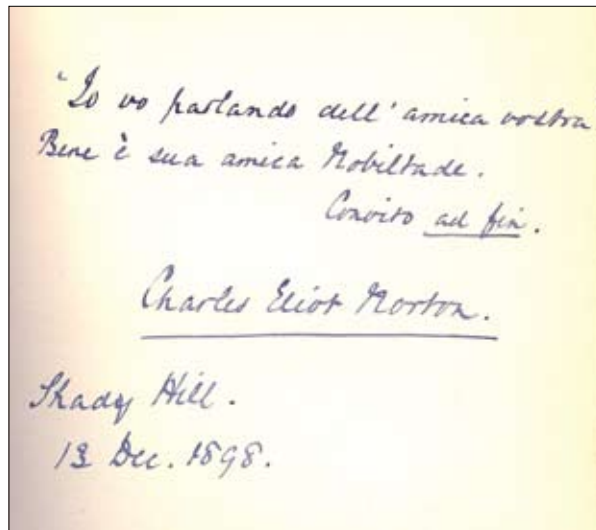 "Io vo parlando dell' amica vostra
Bene è sua amica Nobiltade.
Convito ad fin.
Charles Eliot Norton.
Shady Hill.
13 Dec. 1898.